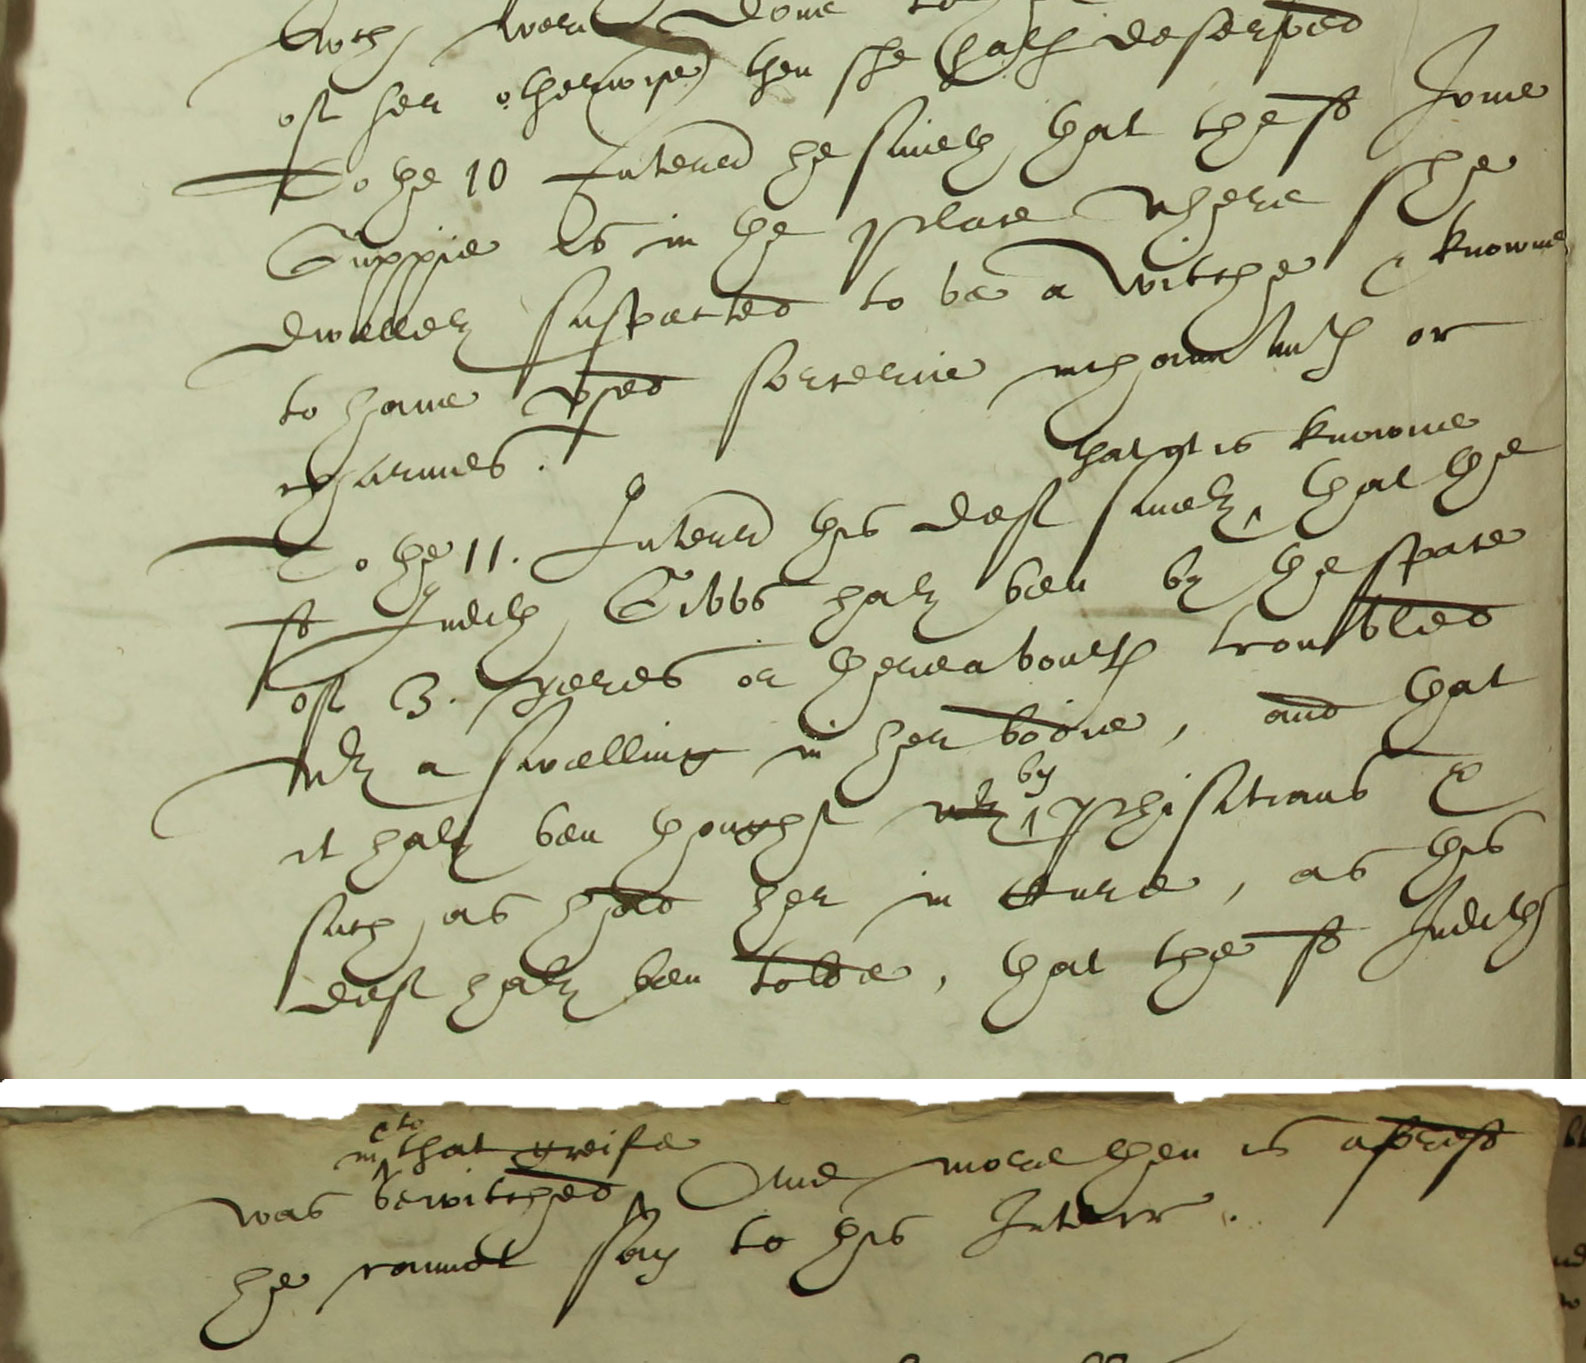 such were done to
of her otherwise then she hath deserved
To the 10 Interr he saieth that the sd Jone
Guppie is in the place where she
dwelleth suspected to be a witche & knowne
to haue vsed sorcerie inchauntmts or
charmes.
that yt is knowne
To the 11. Interr this dept saieth ^ that the
sd Judith Gibbs hath ben by the space
of 3. yeres or thereaboutes troubled
wth a swelling in her bodie, and that
by
it hath ben thought wth ^ phisitians &
such as had her in cure, as this
dept hath ben tolde, that the sd Judith
in to that greife
was bewitched ^ And more then is aforesd
he cannot say to this Interr.